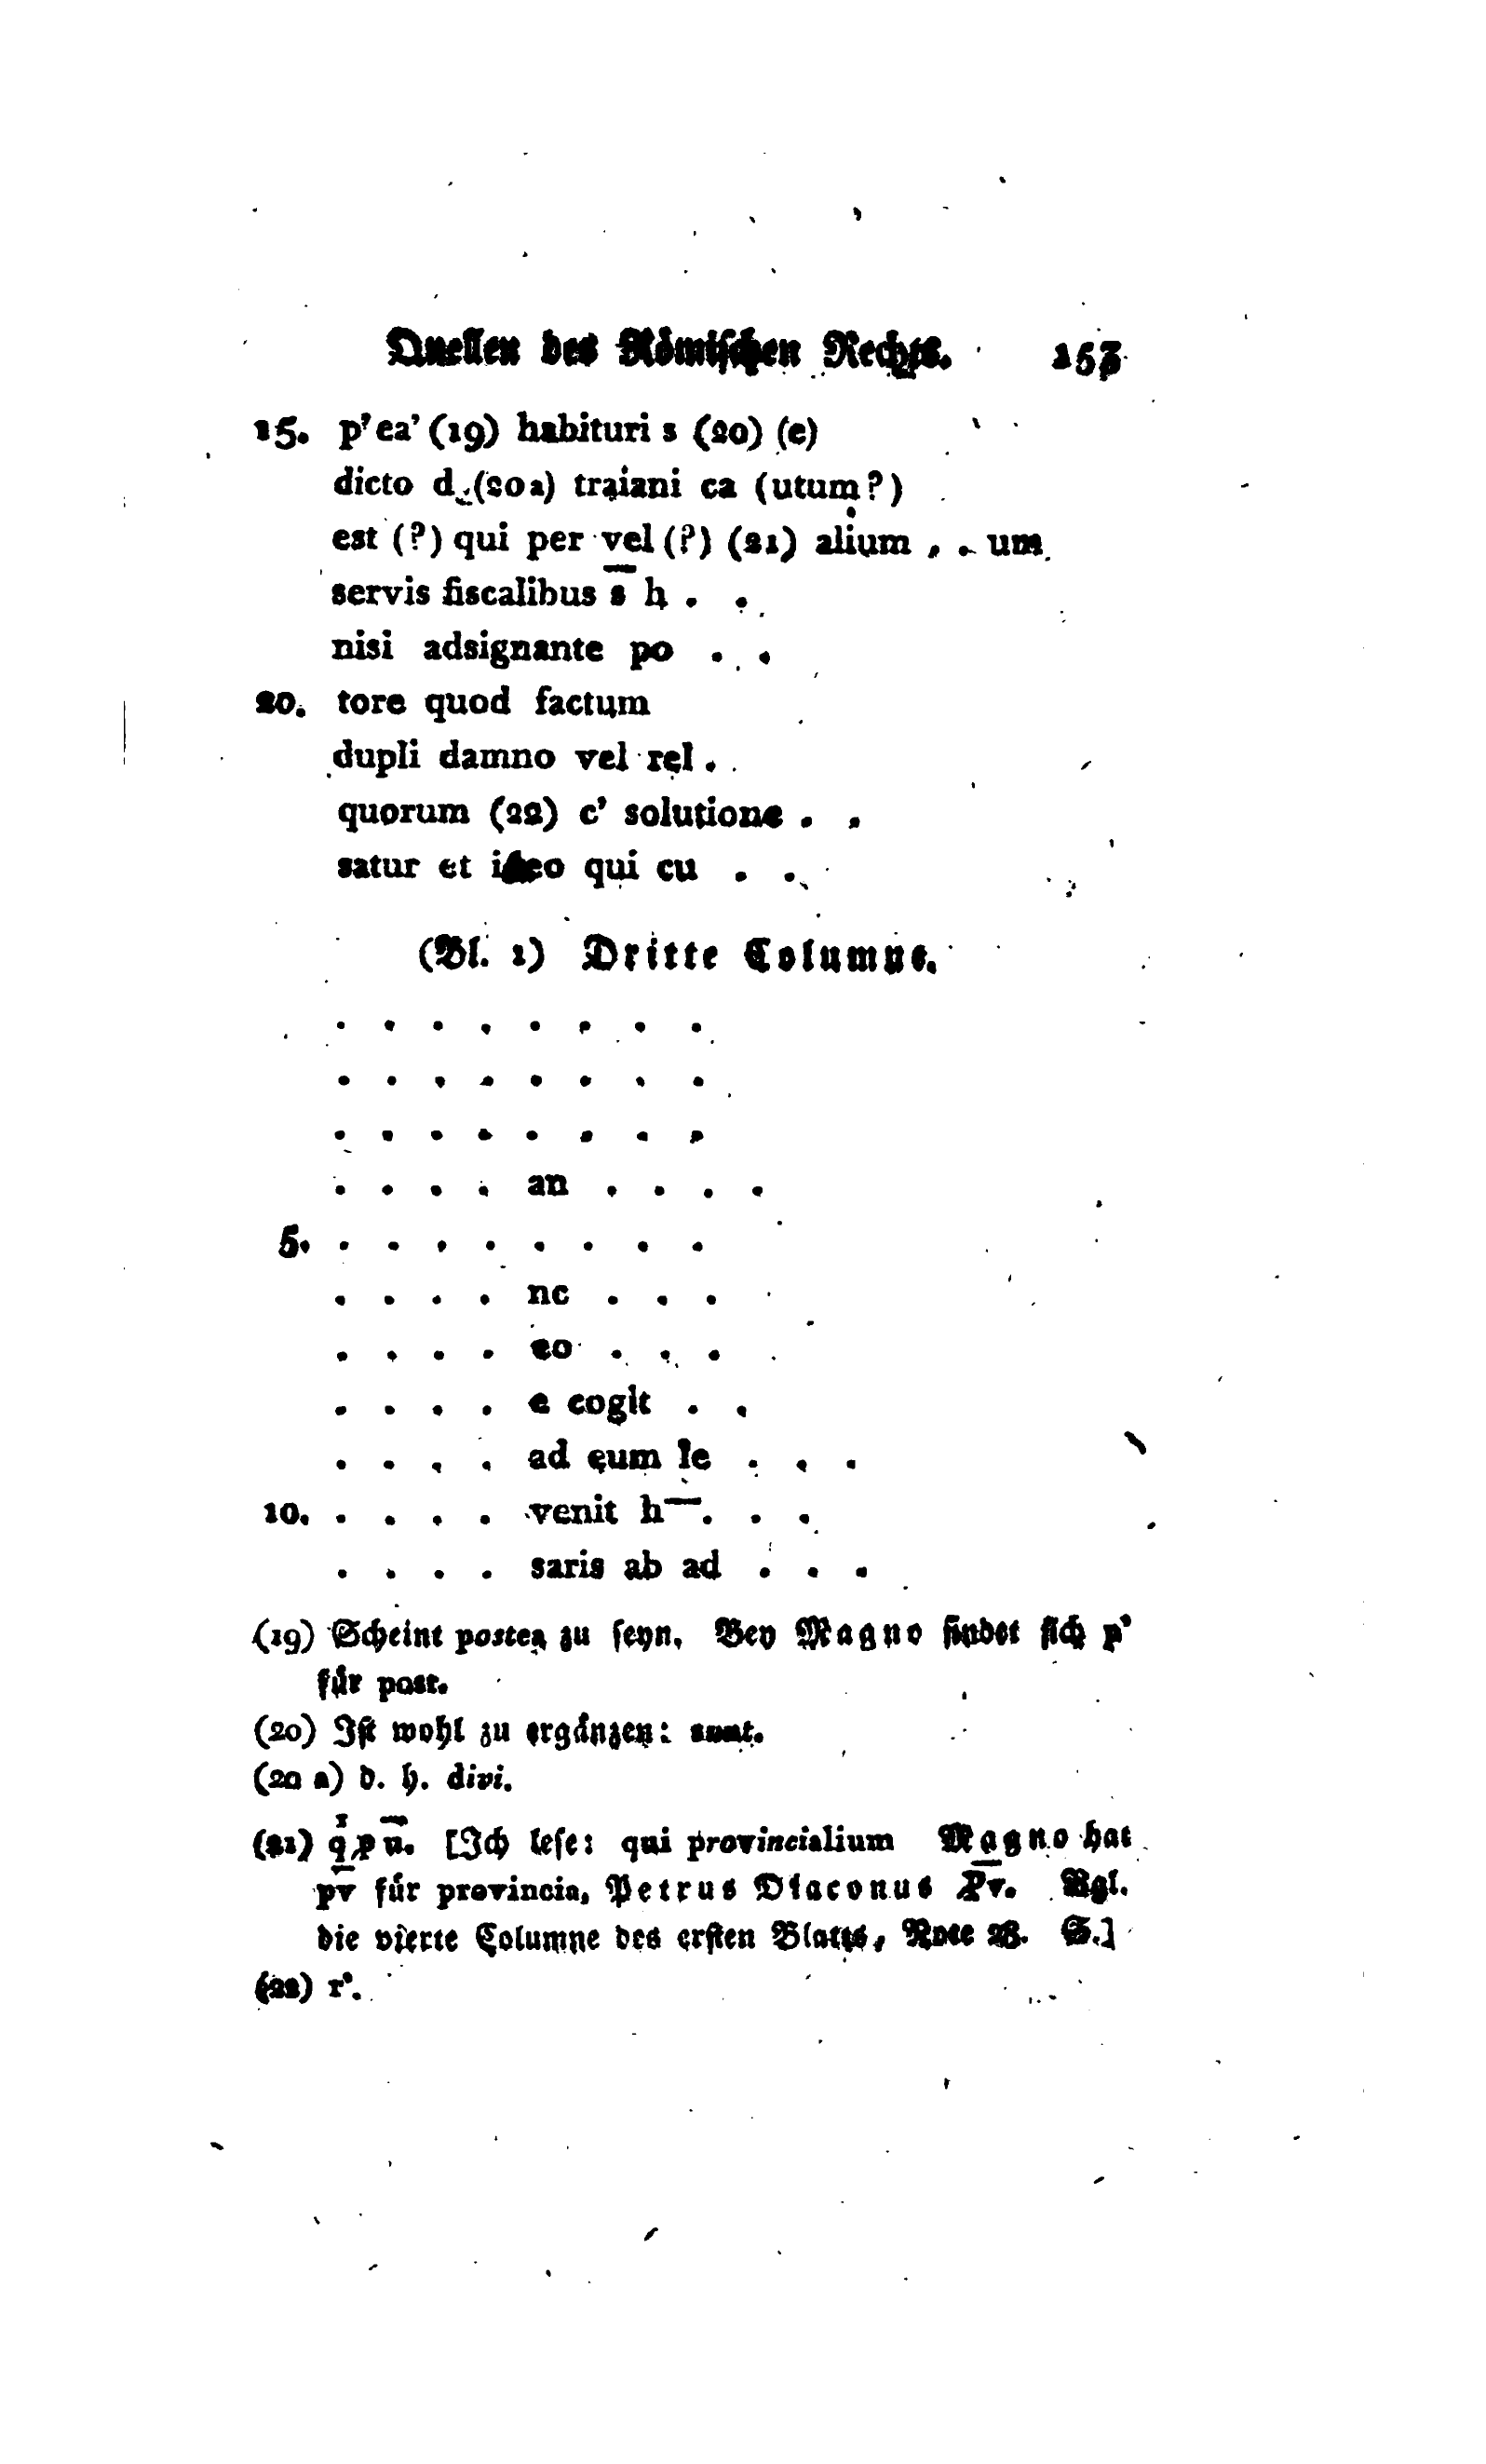 Quellen des Römischen Rechts. 153
15. p' ea' (19) habituri s (20) (e)
dicto d. (20 a) traiani ca (utum?)
est (?) qui per vel (?) (21) alium . . um
servis fiscalibus s̅ h . .
nisi adsignante po . .
20. tore quod factum
dupli damno vel rel .
quorum (22) c' solutione . .
satur et ideo qui cu . .
(Bl. 1) Dritte Columne.
. . . . . . . .
. . . . . . . .
. . . . . . . .
. . . . an . . . .
5. . . . . . . . .
. . . . nc . . .
. . . . eo . . .
. . . . e cogit . .
. . . . ad eum le . . .
10. . . . . venit h— . . .
. . . . saris ab ad . . .
(19) Scheint postea zu seyn. Bey Magno findet sich p'
für post.
(20) Ist wohl zu ergänzen: sunt.
(20 a) d. h. divi.
(21) qͥ p u̅. [Ich lese: qui provincialium Magno hat
pv̅ für provincia, Petrus Diaconus P̅v̅. Vgl.
die vierte Columne des ersten Blatts, Note 28. S.]
(22) r'.